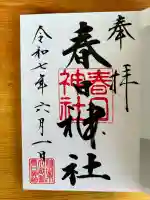 奉拝
春日神社
春日神社
令和七年六月一日